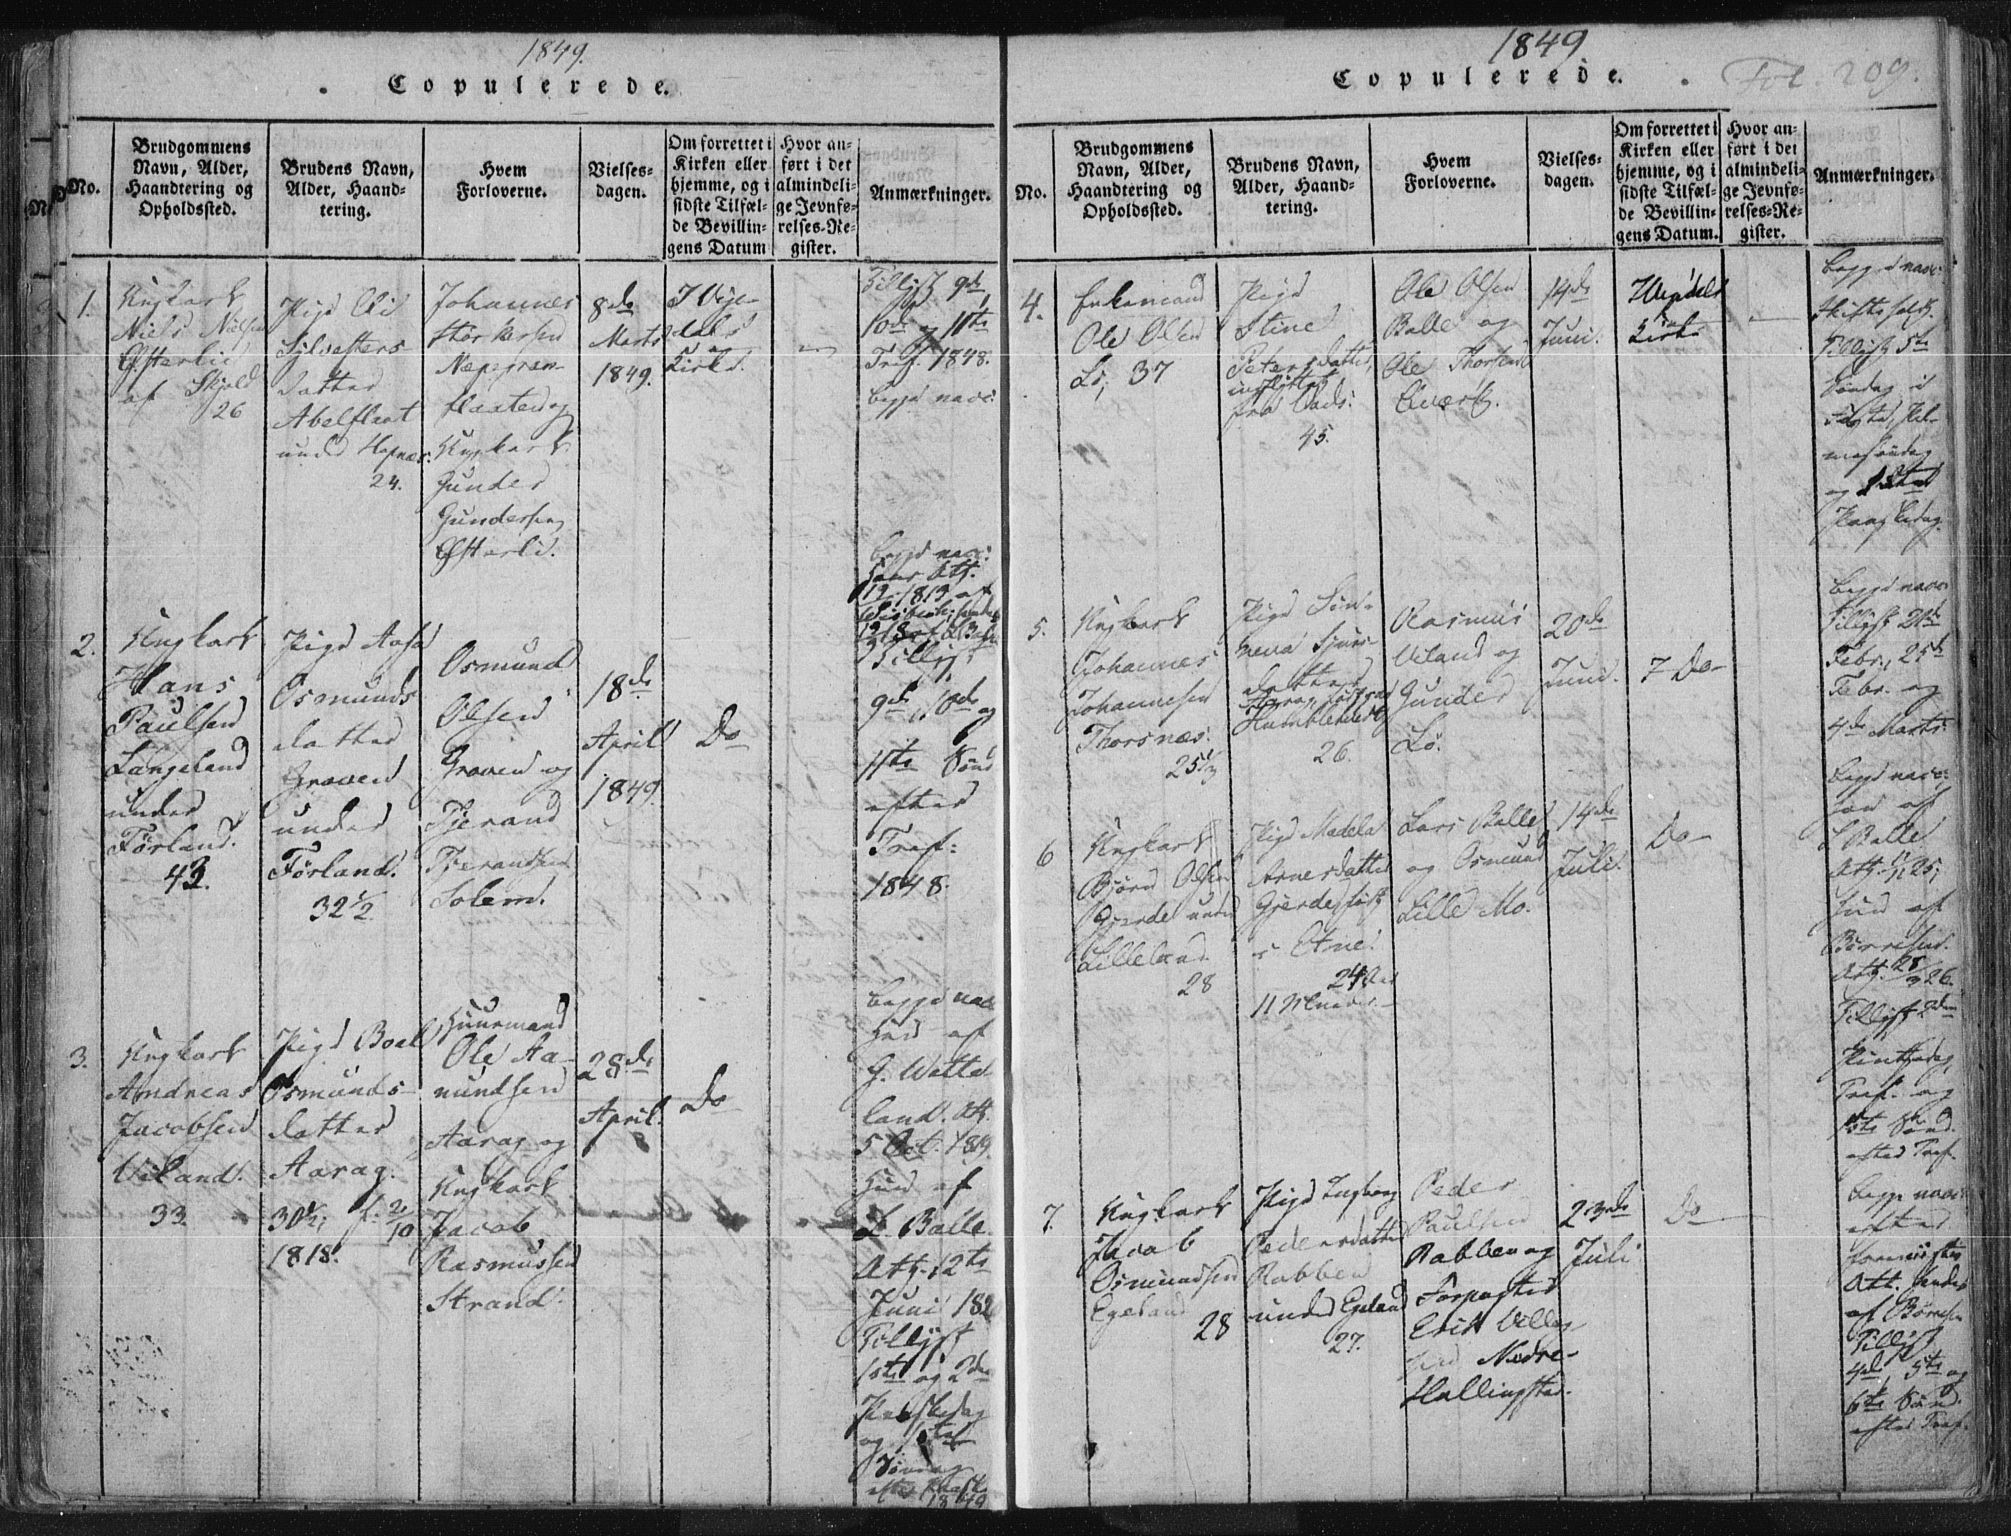 1849.
Copulerede.
No.
Brudgommens
Navn, Alder,
Haandtering og
Opholdssted.
Brudens Navn,
Alder, Haand-
tering.
Hvem
Forloverne.
Vielses-
dagen.
Om forrettet i
Kirken eller
hjemme, og i
sidste Tilfæl-
de Bevillin-
gens Datum
Hvor an-
ført i det
almindeli-
ge Jevnfø-
relses-Re-
gister.
Anmærkninger.
1.
Ungkarl
Niels Nielsen
Østerlid
af Skjold
26
Pige
Sylvesters
datter
Abelflaat
under
24.
Johannes
Storkersen
flaaten og
Ungkarl
Gunder
Gundersen
Østerlid.
8de
Marts
1849.
I Vige-
dals
Kirke.
Tillyst 9de
10de og 11te
Tref. 1848.
begge nav:
2.
Ungkarl
Hans
Paulsen
Langeland
under
Førland.
43.
Pige Aasa
Osmunds
datter
Graven
under
Førland.
32½
Osmund
Olsen
Graven og
Tjerand
Tjerandsen
Solem.
18de
April
1849.
Do
begge nav:
Tillyst
9de, 10de og
11te Sønd
efter
Tref:
1848.
3.
Ungkarl
Andreas
Jacobsen
Viland.
33.
Pige Boel
Osmunds-
datter
Aarag.
30½, f. 2/10
1818.
Huusmand
Ole Aa-
mundsen
Aarag og
Ungkarl
Jacob
Rasmussen
Strand.
28de
April.
Do
begge nav
af
land. Att.
5 Oct. 1819
af
L. Balle
Att. 12te
Juni 182
Tillyst
1ste og 2den
Paaskedag
og 1ste
Søndag
efter Paaske
1849
1849
Copulerede.
Fol. 209.
No.
Brudgommens
Navn, Alder,
Haandtering og
Opholdssted.
Brudens Navn,
Alder, Haand-
tering.
Hvem
Forloverne.
Vielses-
dagen.
Om forrettet i
Kirken eller
hjemme, og i
sidste Tilfæl-
de Bevillin-
gens Datum.
Hvor an-
ført i det
almindeli-
ge Jevnfø-
relses-Re-
gister.
Anmærkninger.
4.
Enkemand
Ole Olsen
Lø, 37
Pige
Stine
Petersdatter,
indflyttet
fra
45.
Ole Olsen
Balle og
Ole Thorsen
14de
Juni.
Vigedals
Kirke
begge nav:
Tillyst 5te
Søndag i
Faste, Pal-
mesøndag
og 1ste
Paaskedag.
5.
Ungkarl
Johannes
Johannesen
Thorsnæs.
Pige Sün-
neva Sjurs-
datter
26.
Rasmus
Viland og
Gunder
Lø.
20de
Juni.
Do
begge nav:
Tillyst
Febr., 25de
Febr. og
4de Marts.
6
Ungkarl
Bjørn Olsen
Gjerde under
Lilleland
28
Pige Madela
Arnesdatter
Gjerde, født
i Etne.
24 Aar
11 Maaneder.
Lars Balle
og Osmund
Lille Mo.
14de
Juli.
Do
begge nav:
af
L Balle
Att.
af
Børresen.
Att.
Tillyst 2den
Pintsedag,
Tref. og
1ste Sønd.
efter Tref.
7.
Ungkarl
Jacob
Osmundsen
Egeland
28
Pige Ingborg
Pedersdatter
Rabben
under Egeland
27.
Peder
Paulsen
Rabben og
Forpagter
Erik
Nedre-
23de
Juli
Do
begge nav:
efter
Att.
af Børresen
Tillyst
4de, 5te og
6te Sønd.
efter Tref.